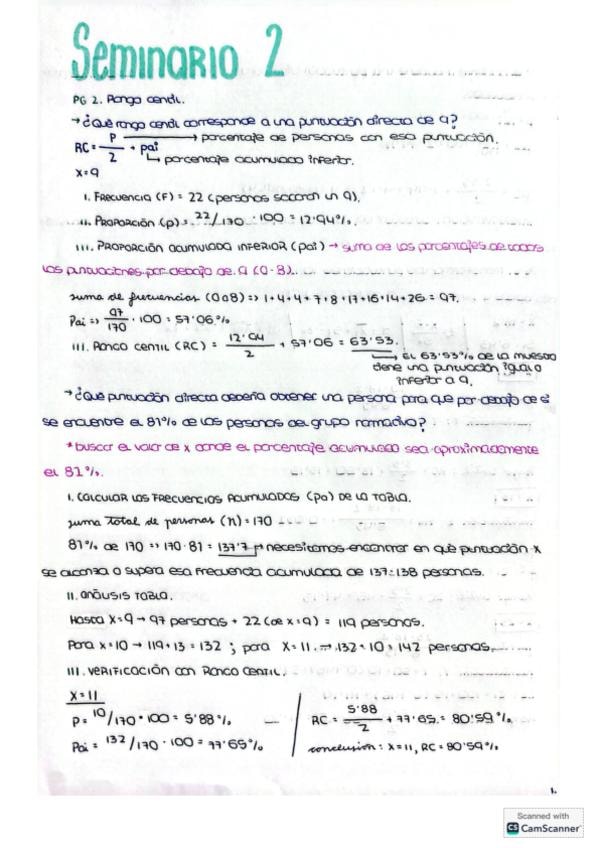 Seminario 2
PG 2. Rango centil.
→ ¿Qué rango centil corresponde a una puntuación directa de 9?
RC = P/2 + pai
P → porcentaje de personas con esa puntuación.
↳ porcentaje acumulado inferior.
X = 9
I. Frecuencia (F) = 22 (personas sacaron un 9).
II. Proporción (p) = 22/170 · 100 = 12'94%.
III. Proporción acumulada inferior (pai) → suma de los porcentajes de todas
las puntuaciones por debajo de 9 (0-8).
suma de frecuencias (0 a 8) => 1+4+4+7+8+17+16+14+26 = 97.
Pai => 97/170 · 100 = 57'06%
III. Rango centil (RC) = 12'94/2 + 57'06 = 63'53.
↳ el 63'53% de la muestra
tiene una puntuación igual o
inferior a 9.
→ ¿Qué puntuación directa debería obtener una persona para que por debajo de él
se encuentre el 81% de las personas del grupo normativo?
* buscar el valor de x donde el porcentaje acumulado sea aproximadamente
el 81%.
I. Calcular las frecuencias acumuladas (Pa) de la tabla.
suma total de personas (n) = 170
81% de 170 => 170·81 = 137'7 → necesitamos encontrar en qué puntuación x
se alcanza o supera esa frecuencia acumulada de 137=138 personas.
II. Análisis tabla.
Hasta x=9 → 97 personas + 22 (de x=9) = 119 personas.
Para x=10 → 119+13 = 132 ; para x=11 → 132+10 = 142 personas.
III. Verificación con Rango Centil.
X = 11
P = 10/170 · 100 = 5'88%
Pai = 132/170 · 100 = 77'65%
RC = 5'88/2 + 77'65 = 80'59%
conclusion: x=11, RC = 80'59%
1.
Scanned with
CS CamScanner